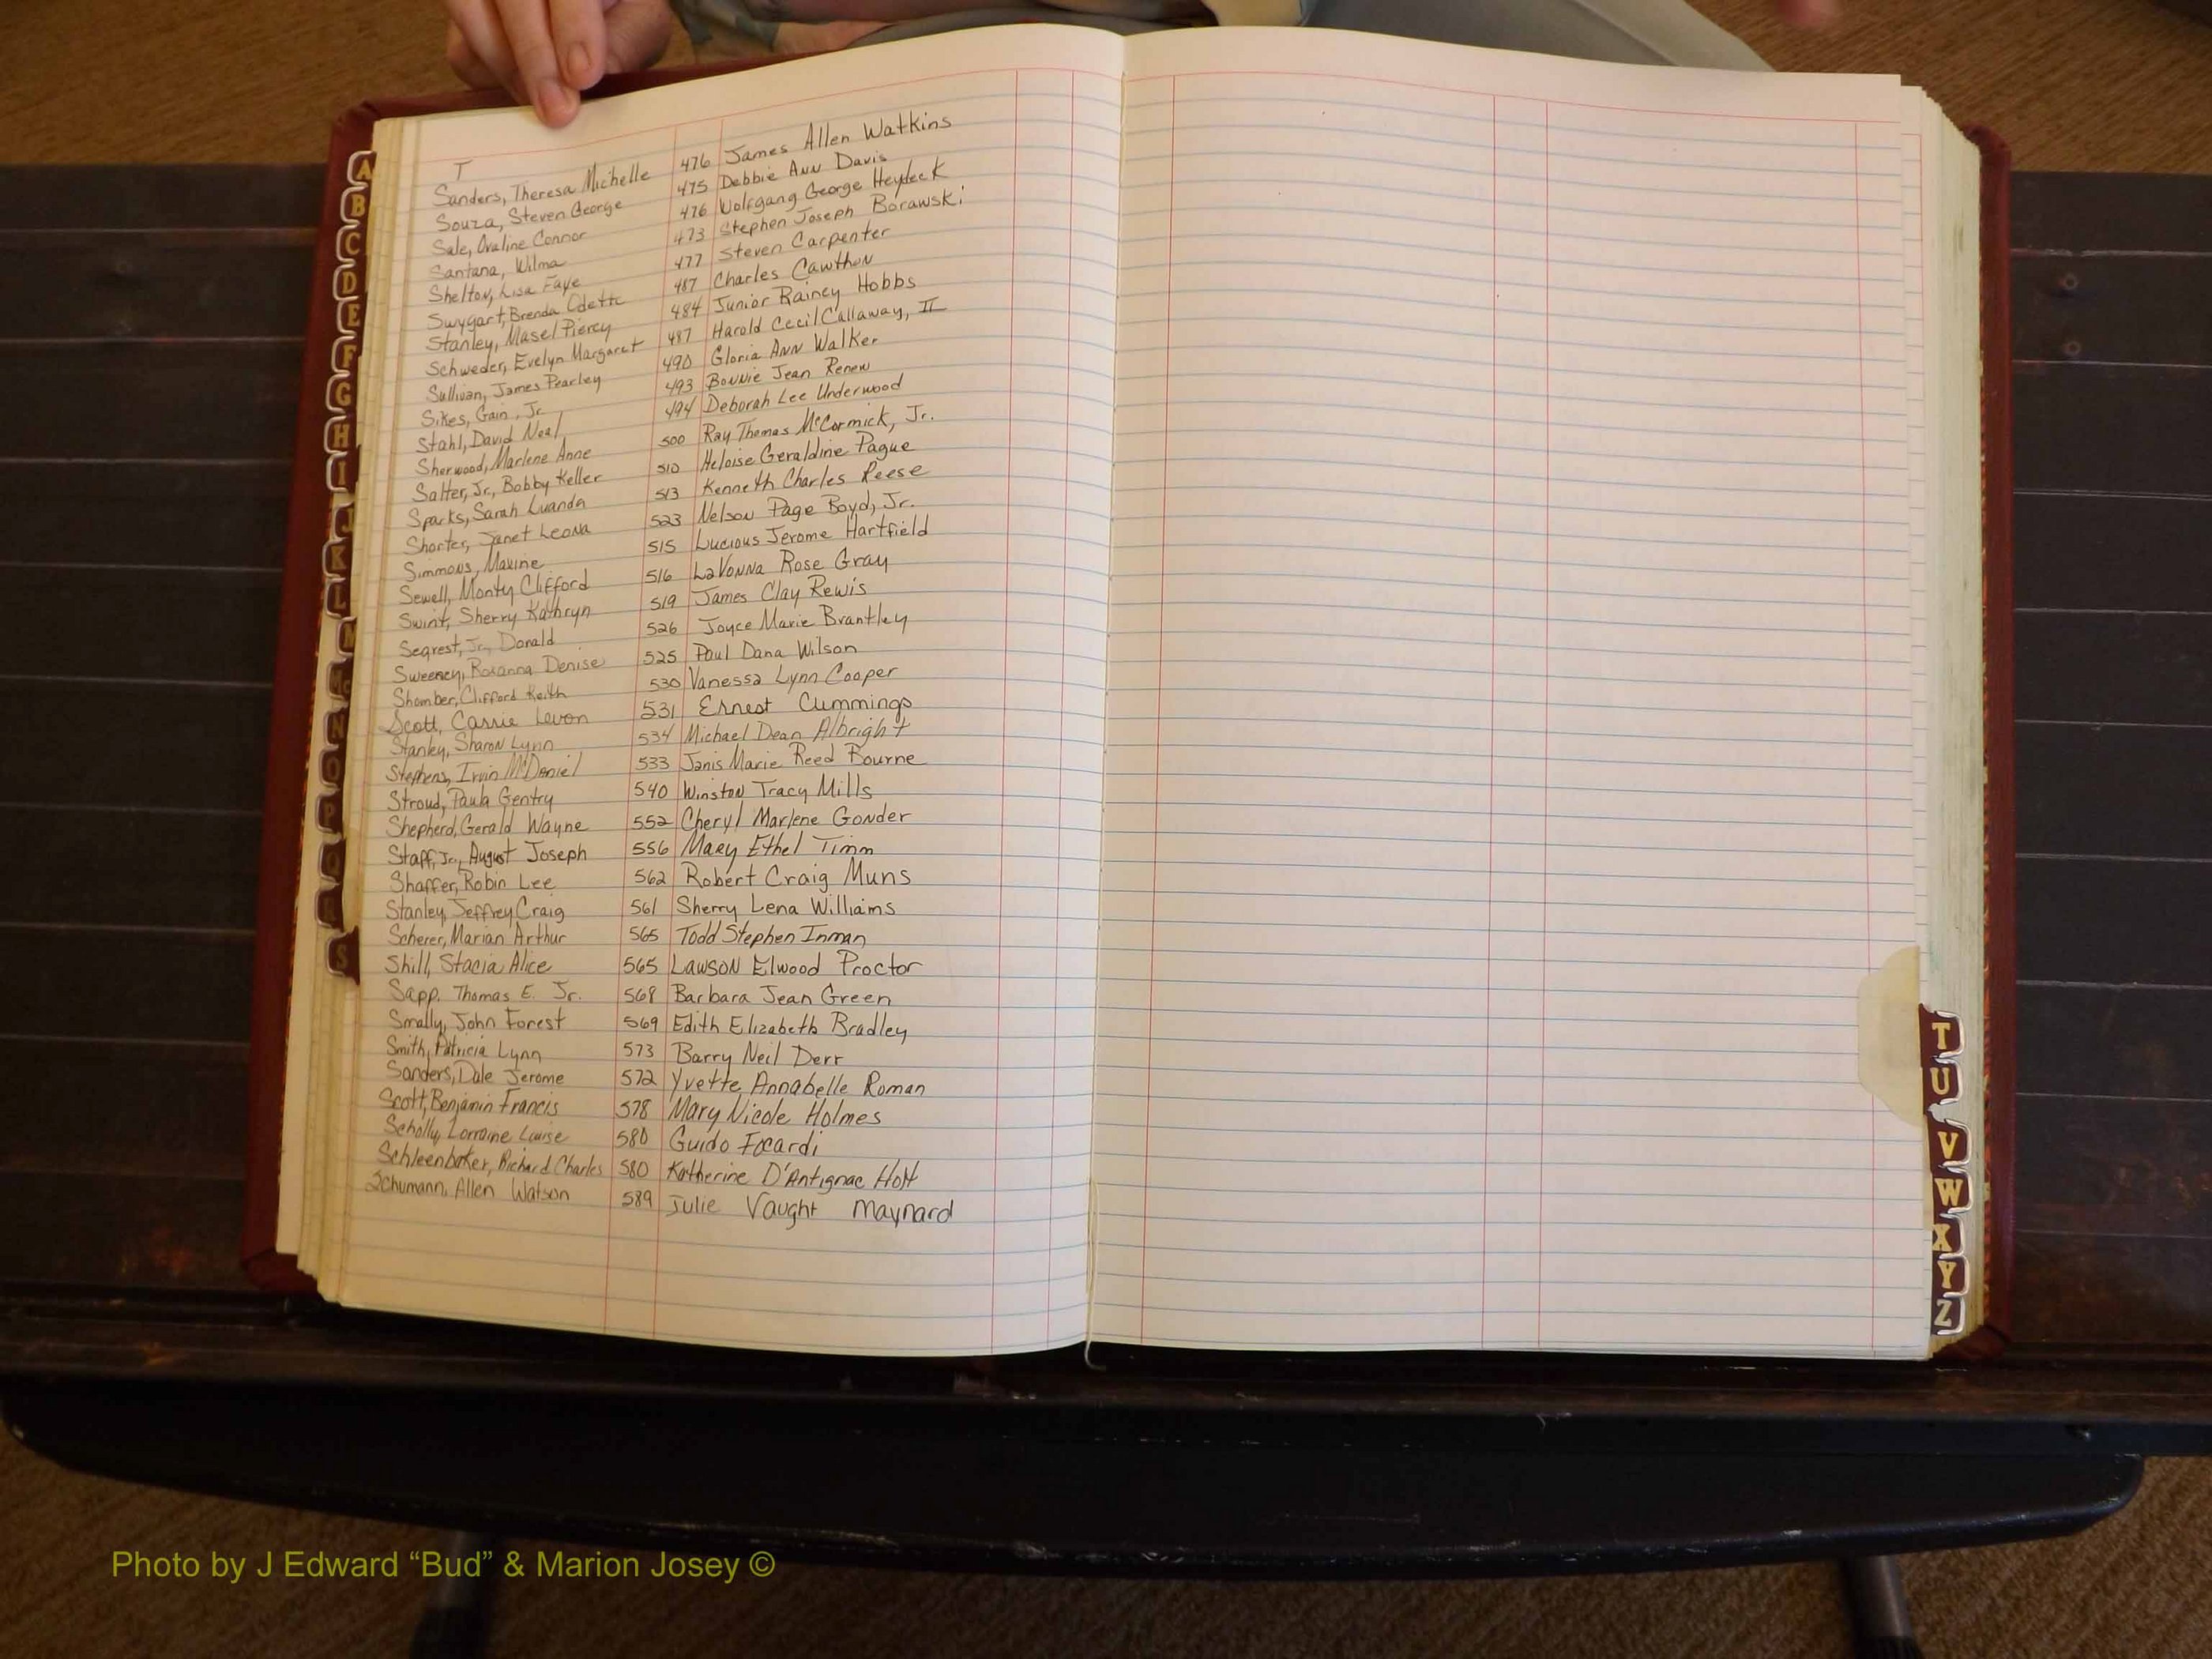 T
Sanders, Theresa Michelle 476 James Allen Watkins
Souza, Steven George 475 Debbie Ann Davis
Sale, Ovaline Connor 476 Wolfgang George Heydeck
Santana, Wilma 473 Stephen Joseph Borawski
Shelton, Lisa Faye 477 Steven Carpenter
Swygart, Brenda Odette 487 Charles Cawthon
Stanley, Masel Piercy 484 Junior Rainey Hobbs
Schweder, Evelyn Margaret 487 Harold Cecil Callaway, II
Sullivan, James Pearley 490 Gloria Ann Walker
Sikes, Gain, Jr 493 Bonnie Jean Renew
Stahl, David Neal 494 Deborah Lee Underwood
Sherwood, Marlene Anne 500 Ray Thomas McCormick, Jr.
Salter, Jr., Bobby Keller 510 Heloise Geraldine Pague
Sparks, Sarah Luanda 513 Kenneth Charles Reese
Shorter, Janet Leona 523 Nelson Page Boyd, Jr.
Simmons, Maxine 515 Lucious Jerome Hartfield
Sewell, Monty Clifford 516 LaVonna Rose Gray
Swint, Sherry Kathryn 519 James Clay Rewis
Segrest, Jr., Donald 526 Joyce Marie Brantley
Sweeney, Roxanna Denise 525 Paul Dana Wilson
Shamber, Clifford Keith 530 Vanessa Lynn Cooper
Scott, Carrie Levon 531 Ernest Cummings
Stanley, Sharon Lynn 534 Michael Dean Albright
Stephens, Irvin McDaniel 533 Janis Marie Reed Bourne
Stroud, Paula Gentry 540 Winston Tracy Mills
Shepherd, Gerald Wayne 552 Cheryl Marlene Gonder
Staff, Jr., August Joseph 556 Mary Ethel Timm
Shaffer, Robin Lee 562 Robert Craig Muns
Stanley, Jeffrey Craig 561 Sherry Lena Williams
Scherer, Marian Arthur 565 Todd Stephen Inman
Shill, Stacia Alice 565 Lawson Elwood Proctor
Sapp. Thomas E. Jr. 568 Barbara Jean Green
Smally, John Forest 569 Edith Elizabeth Bradley
Smith, Patricia Lynn 573 Barry Neil Derr
Sanders, Dale Jerome 572 Yvette Annabelle Roman
Scott, Benjamin Francis 578 Mary Nicole Holmes
Scholly, Lorraine Luise 580 Guido Focardi
Schleenbaker, Richard Charles 580 Katherine D'Antignac Holt
Schumann, Allen Watson 589 Julie Vaught Maynard
A
B
C
D
E
F
G
H
I
J
K
L
M
Mc
N
O
P
Q
R
S
T
U
V
W
X
Y
Z
Photo by J Edward “Bud” & Marion Josey ©